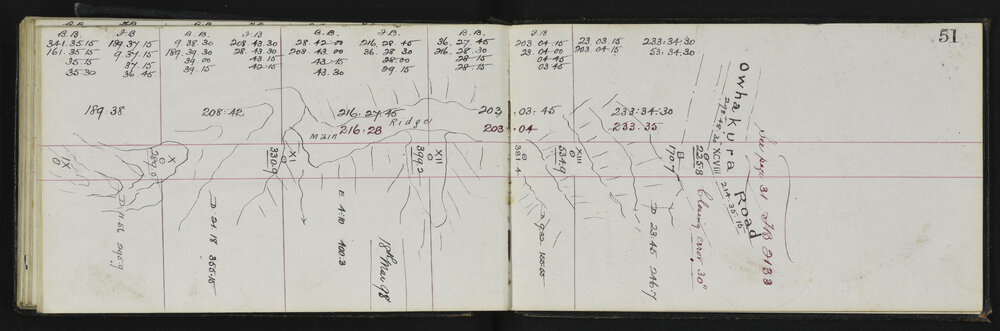 51
B.B. F.B B.B. F.B B.B. F.B B.B. F.B
341.35.15 189.37.15 9.38.30 208.43.30 28.42.00 216.28.45 36.27.45 203.04.15 23.03.15 233.34.30
161.35.15 9.37.15 189.39.30 28.43.30 208.43.00 36.28.30 216.28.30 23.04.00 203.04.15 53.34.30
35.15 37.15 39.00 43.15 43.15 28.00 28.15 04.45
35.30 36.45 39.15 42.15 43.30 29.15 28.15 03.45
189.38 208.42 216.27.45 203.03.45 233.34.30
Main Ridge
216.28 203.04 233.35
IX
X
XI
330.9
XII
399.2
381.4
XIII
531.9
170.7
2258
XCVIII
D 21.18 355.15
E 4.10 100.3
18th Mar 98
D 23.45 246.7
Owhakura Road
214.35.15
Closing error 30"
See page 31 FB 2133